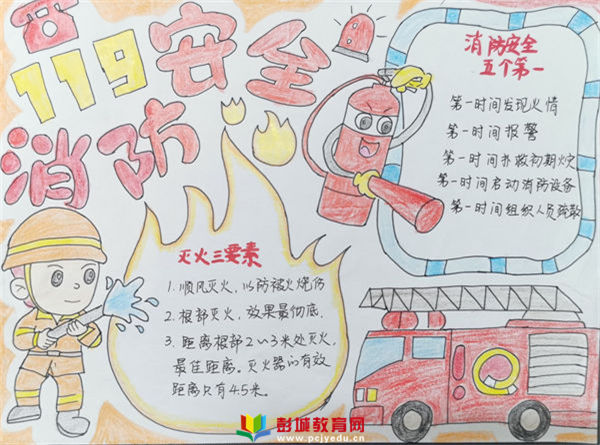 119安全
消防
消防安全
五个第一
第一时间发现火情
第一时间报警
第一时间扑救初期火灾
第一时间启动消防设备
第一时间组织人员疏散
灭火三要素
1. 顺风灭火，以防被火烧伤
2. 根部灭火，效果最彻底.
3. 距离根部2~3米处灭火，
最佳距离。灭火器的有效
距离只有4.5米.
彭城教育网
www.pcjyedu.cn